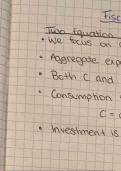 Fisc
Two Equation
• We focus on
• Aggregate exp
• Both C and
• Consumption
C =
• Investment is